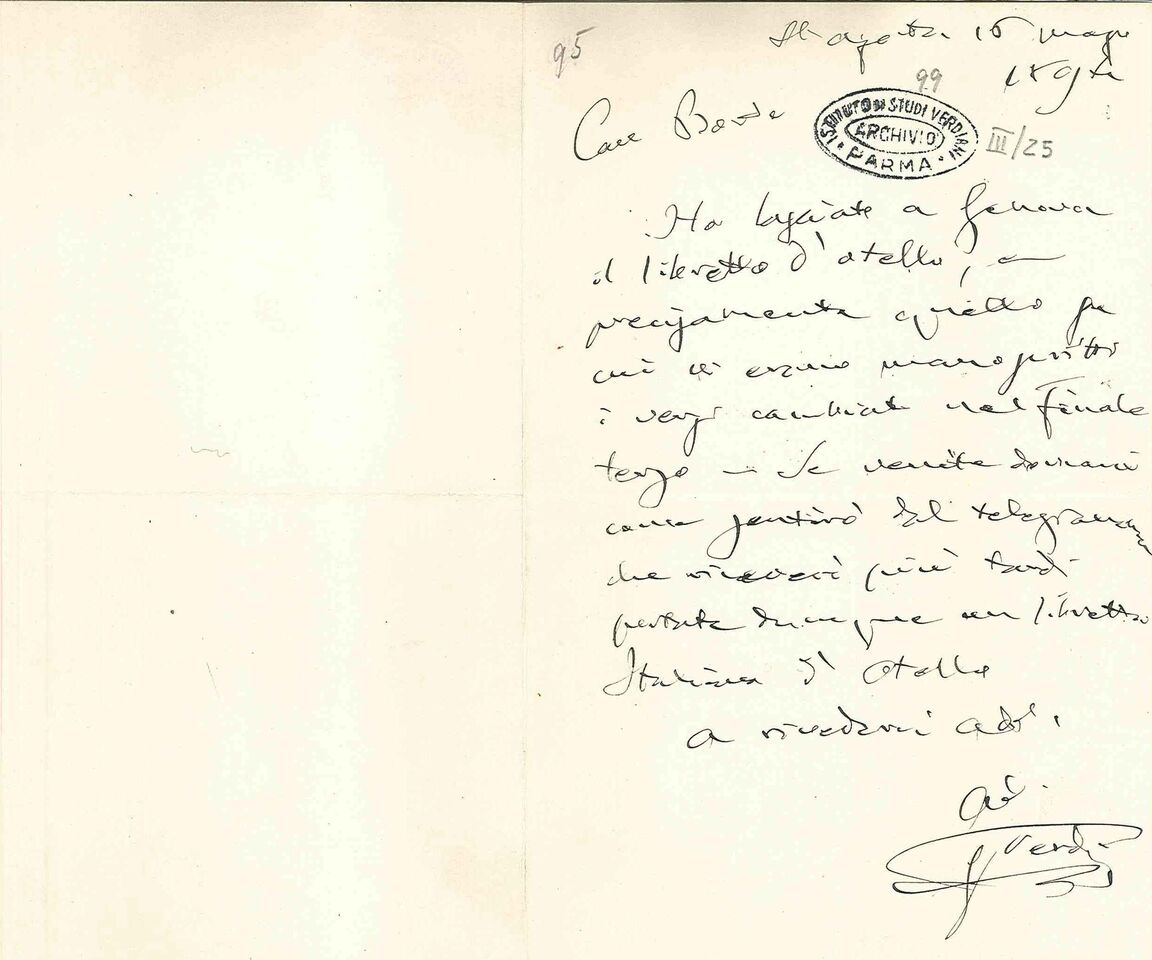 95
St Agata 16 magg
1894
99
Caro Boito
ISTITUTO DI STUDI VERDIANI
ARCHIVIO
• PARMA •
III/25
Ho lasciato a Genova
il libretto d'otello, e
precisamente quello su
cui vi erano manoscritti
i versi cambiati nel Finale
terzo — Se venite domani
come sentirò dal telegramma
che riceverò più tardi
portate dunque un libretto
Italiano d'Otello
a rivederci adº.
Aº.
G Verdi